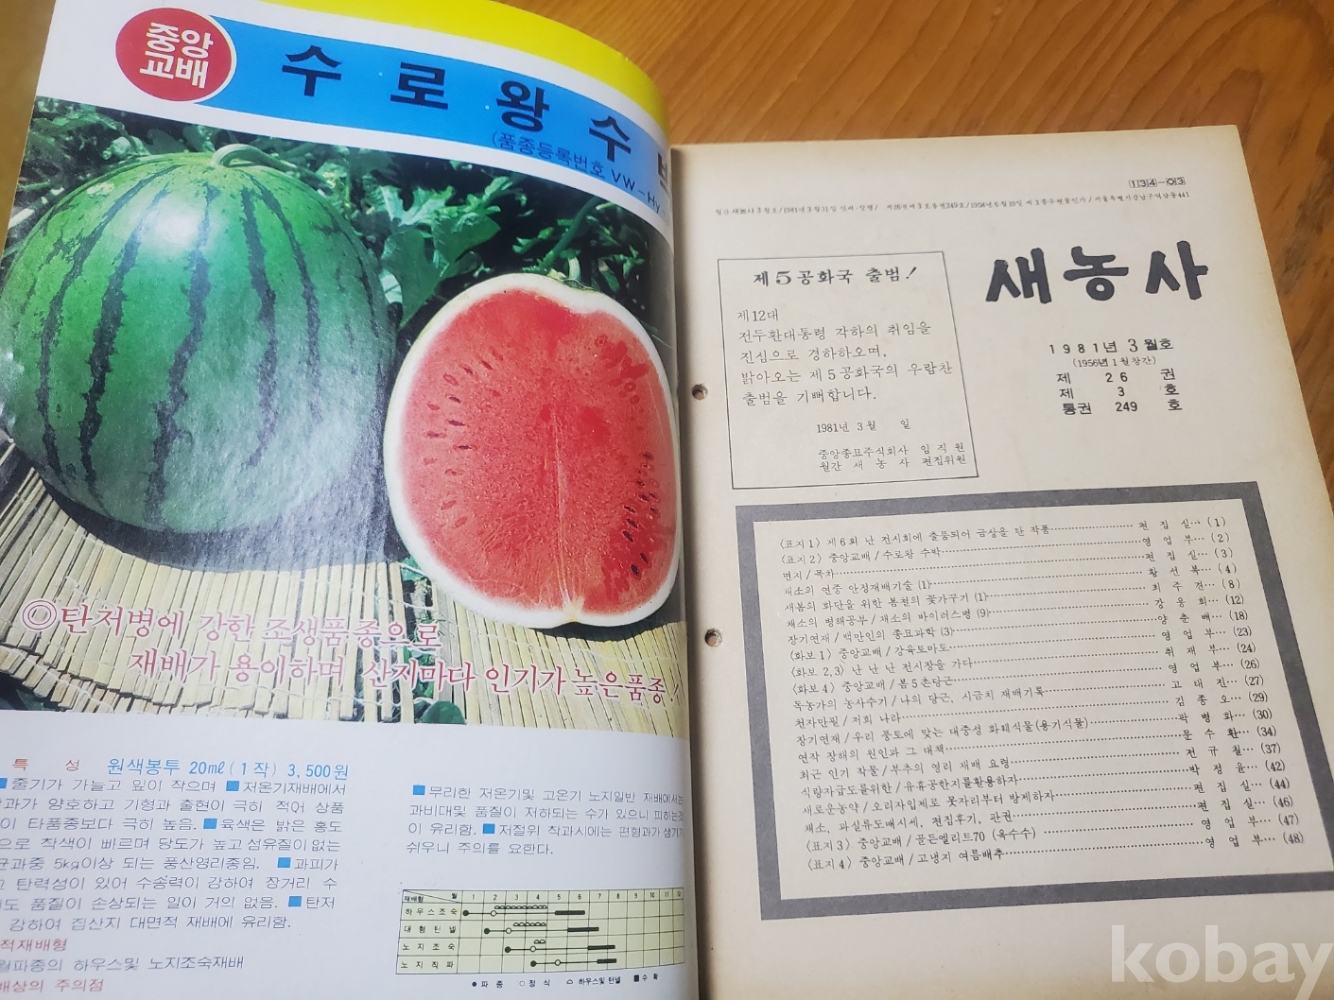 중앙
교배
수로왕수
(품종등록번호 VW-Hy
◎탄저병에 강한 조생품종으로
재배가 용이하며 산지마다 인기가 높은품종!
특 성 원색봉투 20㎖ (1작) 3,500원
■줄기가 가늘고 잎이 작으며 ■저온기재배에서
과가 양호하고 기형과 출현이 극히 적어 상품
이 타품종보다 극히 높음. ■육색은 밝은 홍도
으로 착색이 빠르며 당도가 높고 섬유질이 없는
균과중 5kg이상 되는 풍산영리종임. ■과피가
고 탄력성이 있어 수송력이 강하여 장거리 수
도 품질이 손상되는 일이 거의 없음. ■탄저
강하여 집산지 대면적 재배에 유리함.
적재배형
월파종의 하우스및 노지조숙재배
배상의 주의점
■무리한 저온기및 고온기 노지일반 재배에서는
과비대및 품질이 저하되는 수가 있으니 피하는것
이 유리함. ■저절위 착과시에는 편형과가 생기기
쉬우니 주의를 요한다.
재배형 월 1 2 3 4 5 6 7 8 9 10 11 12
하우스조숙
대형터널
노지조숙
노지직파
●파종 ○정식 ⌓하우스및 터널 ■수확
134-03
월간 새농사 3월호/1981년 3월 31일 인쇄·발행/ 제26권제3호통권249호/1956년 6월 10일 제3종우편물인가/서울특별시강남구역삼동441
새농사
1981년 3월호
(1956년 1월창간)
제 26 권
제 3 호
통권 249 호
제5공화국 출범!
제12대
전두환대통령 각하의 취임을
진심으로 경하하오며,
밝아오는 제5공화국의 우람찬
출범을 기뻐합니다.
1981년 3월 일
중앙종묘주식회사 임직원
월간 새농사 편집위원
〈표지 1〉 제6회 난 전시회에 출품되어 금상을 탄 작품 편집실 (1)
〈표지 2〉 중앙교배/수로왕 수박 영업부 (2)
면지/목차 편집실 (3)
채소의 연중 안정재배기술 (1) 황선북 (4)
새봄의 화단을 위한 봄철의 꽃가꾸기 (1) 최주견 (8)
채소의 병해공부/채소의 바이러스병 (9) 강웅희 (12)
장기연재/백만인의 종묘과학 (3) 양춘배 (18)
〈화보 1〉 중앙교배/강육토마토 영업부 (23)
〈화보 2,3〉 난 난 난 전시장을 가다 취재부 (24)
〈화보 4〉 중앙교배/봄5촌당근 영업부 (26)
독농가의 농사수기/나의 당근, 시금치 재배기록 고대진 (27)
천자만필/저희 나라 김종오 (29)
장기연재/우리 풍토에 맞는 대중성 화훼식물(용기식물) 박형화 (30)
연작 장해의 원인과 그 대책 문수환 (34)
최근 인기 작물/부추의 영리 재배 요령 전규철 (37)
식량자급도를위한/유휴공한지를활용하자 박정윤 (42)
새로운농약/오리자입제로 못자리부터 방제하자 편집실 (44)
채소, 과실류도매시세, 편집후기, 판권 편집실 (46)
〈표지 3〉 중앙교배/골든엘리트70 (옥수수) 영업부 (47)
〈표지 4〉 중앙교배/고냉지 여름배추 영업부 (48)
kobay